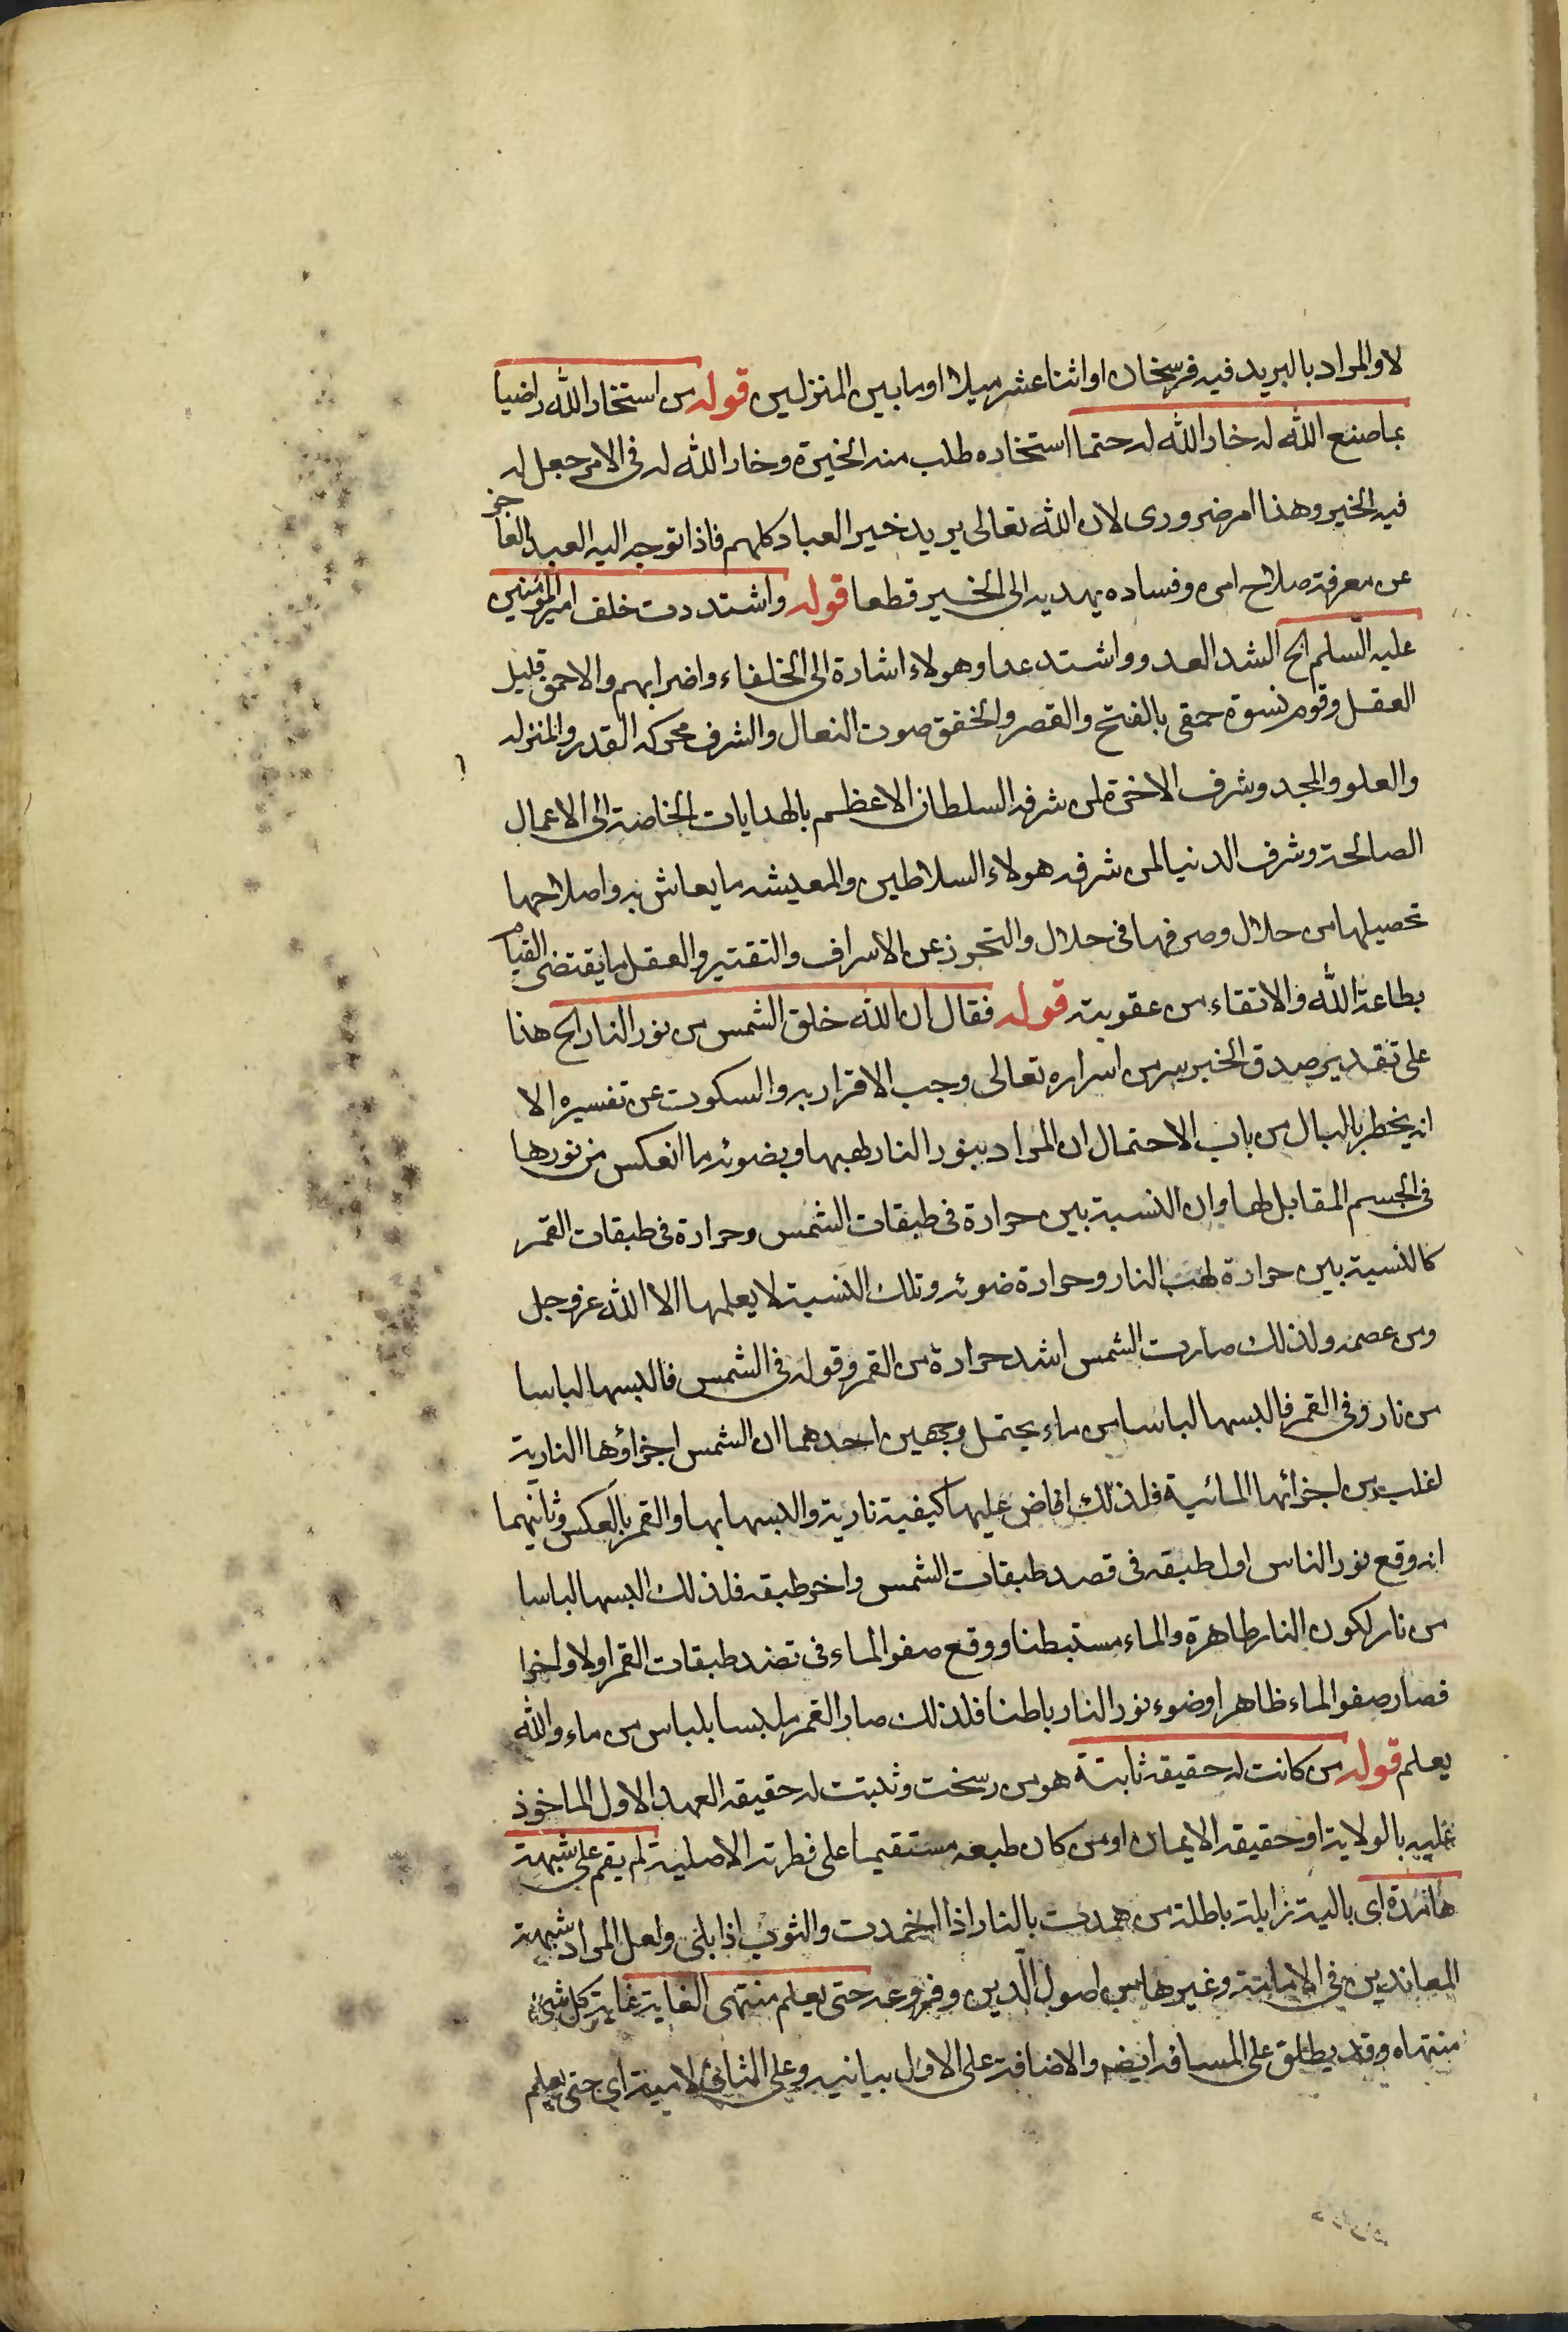 لا والمراد بالبريد فيه فرسخان او اثنا عشر ميلا او ما بين المنزلين قوله من استخار الله راضيا
بما صنع الله له خار الله له حتما استخاره طلب منه الخيرة وخار الله له فى الامر جعل له
فيه الخير وهذا امر ضرورى لان الله تعالى يريد خير العباد كلهم فاذا توجه اليه العبد العاجز
عن معرفة صلاح امره وفساده يهديه الى الخير قطعا قوله واشتددت خلف امير المؤمنين
عليه السلم الخ الشد العدو واشتد عدا وهولاء اشارة الى الخلفاء واضرابهم والاحمق قليل
العقل وقوم نسوة حمقى بالفتح والقصر والخفق صوت النعال والشرف محركه القدر والمنزله
والعلو والمجد وشرف الاخرة لمن شرفه السلطان الاعظم بالهدايات الخاصة الى الاعمال
الصالحة وشرف الدنيا لمن شرفه هولاء السلاطين والمعيشه ما يعاش به واصلاحها
تحصيلها من حلال وصرفها فى حلال والتحرز عن الاسراف والتقتير والعقل ما يقتضى القيام
بطاعة الله والاتقاء من عقوبته قوله فقال ان الله خلق الشمس من نور النار الخ هذا
على تقدير صدق الخبر سر من اسراره تعالى وجب الاقرار به والسكوت عن تفسيره الا
انه يخطر بالبال من باب الاحتمال ان المراد بنور النار لهبها وبضوئه ما انعكس من نورها
فى الجسم المقابل لها وان النسبة بين حرارة فى طبقات الشمس وحرارة فى طبقات القمر
كالنسبة بين حرارة لهب النار وحرارة ضوئه وتلك النسبة لا يعلمها الا الله عز وجل
ومن عصمه ولذلك صارت الشمس اشد حرارة من القمر وقوله فى الشمس فالبسها لباسا
من نار وفى القمر فالبسها لباسا من ماء يحتمل وجهين احدهما ان الشمس اجزاؤها النارية
اغلب من اجزائها المائية فلذلك افاض عليها كيفية نارية والبسها بها والقمر بالعكس وثانيهما
انه وقع نور الناس اول طبقه فى قصد طبقات الشمس واخر طبقه فلذلك البسها لباسا
من نار لكون النار ظاهرة والماء مستبطنا ووقع صفو الماء فى تضد طبقات القمر اولا واخرا
فصار صفو الماء ظاهرا وضوء نور النار باطنا فلذلك صار القمر ملبسا بلباس من ماء والله
يعلم قوله من كانت له حقيقه ثابتة هو من رسخت وثبتت له حقيقه العهد الاول الماخوذ
عليه بالولاية او حقيقه الايمان او من كان طبعه مستقيما على فطرته الاصلية لم يقم على شبهة
هامدة اى بالية زايلة باطلة من همدت بالنار اذا خمدت والثوب اذا بلى ولعل المراد شبهة
المعاندين فى الامامة وغيرها من اصول الدين وفروعه حتى يعلم منتهى الغاية غاية كل شئ
منتهاه وقد يطلق على المسافه ايضه والاضافة على الاول بيانيه وعلى الثانى لامية اى حتى يعلم